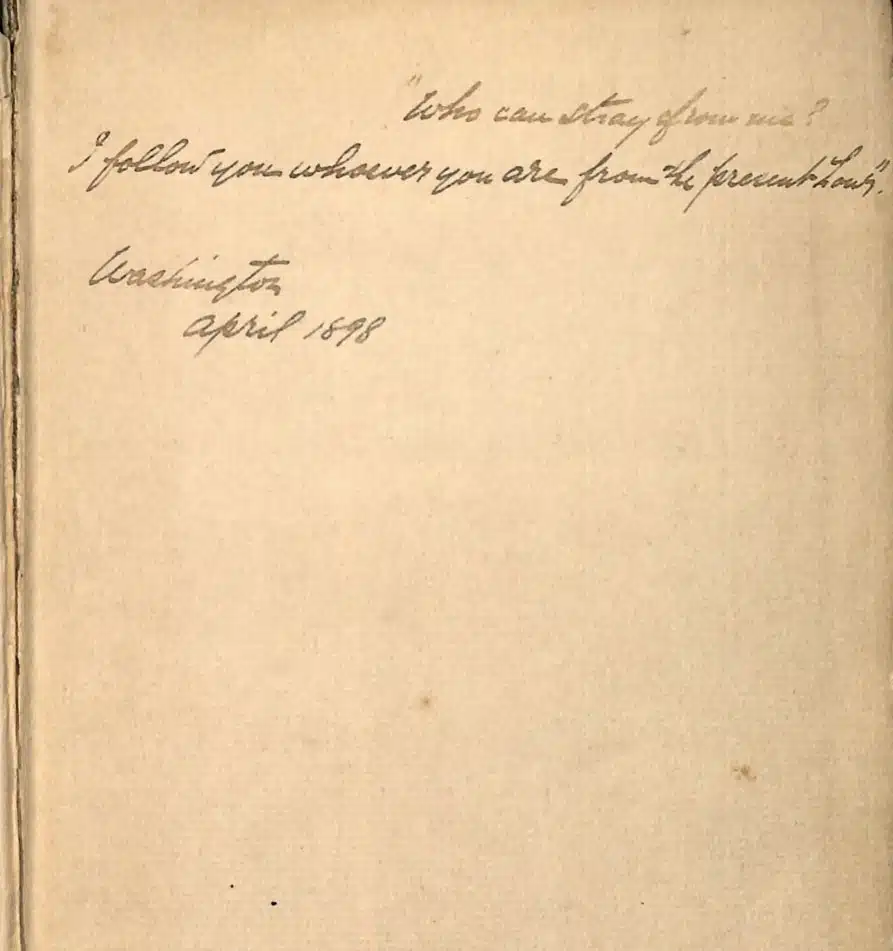 "Who can stray from me?
I follow you whoever you are from the present hour".
Washington
April 1898